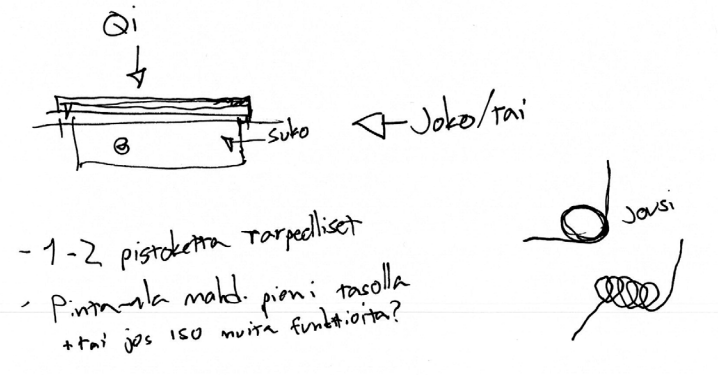 Qi
Joko/tai
suko
Jousi
- 1-2 pistoketta tarpeelliset
- Pinta-ala mahd. pieni tasolla
+ tai jos iso muita funktioita?